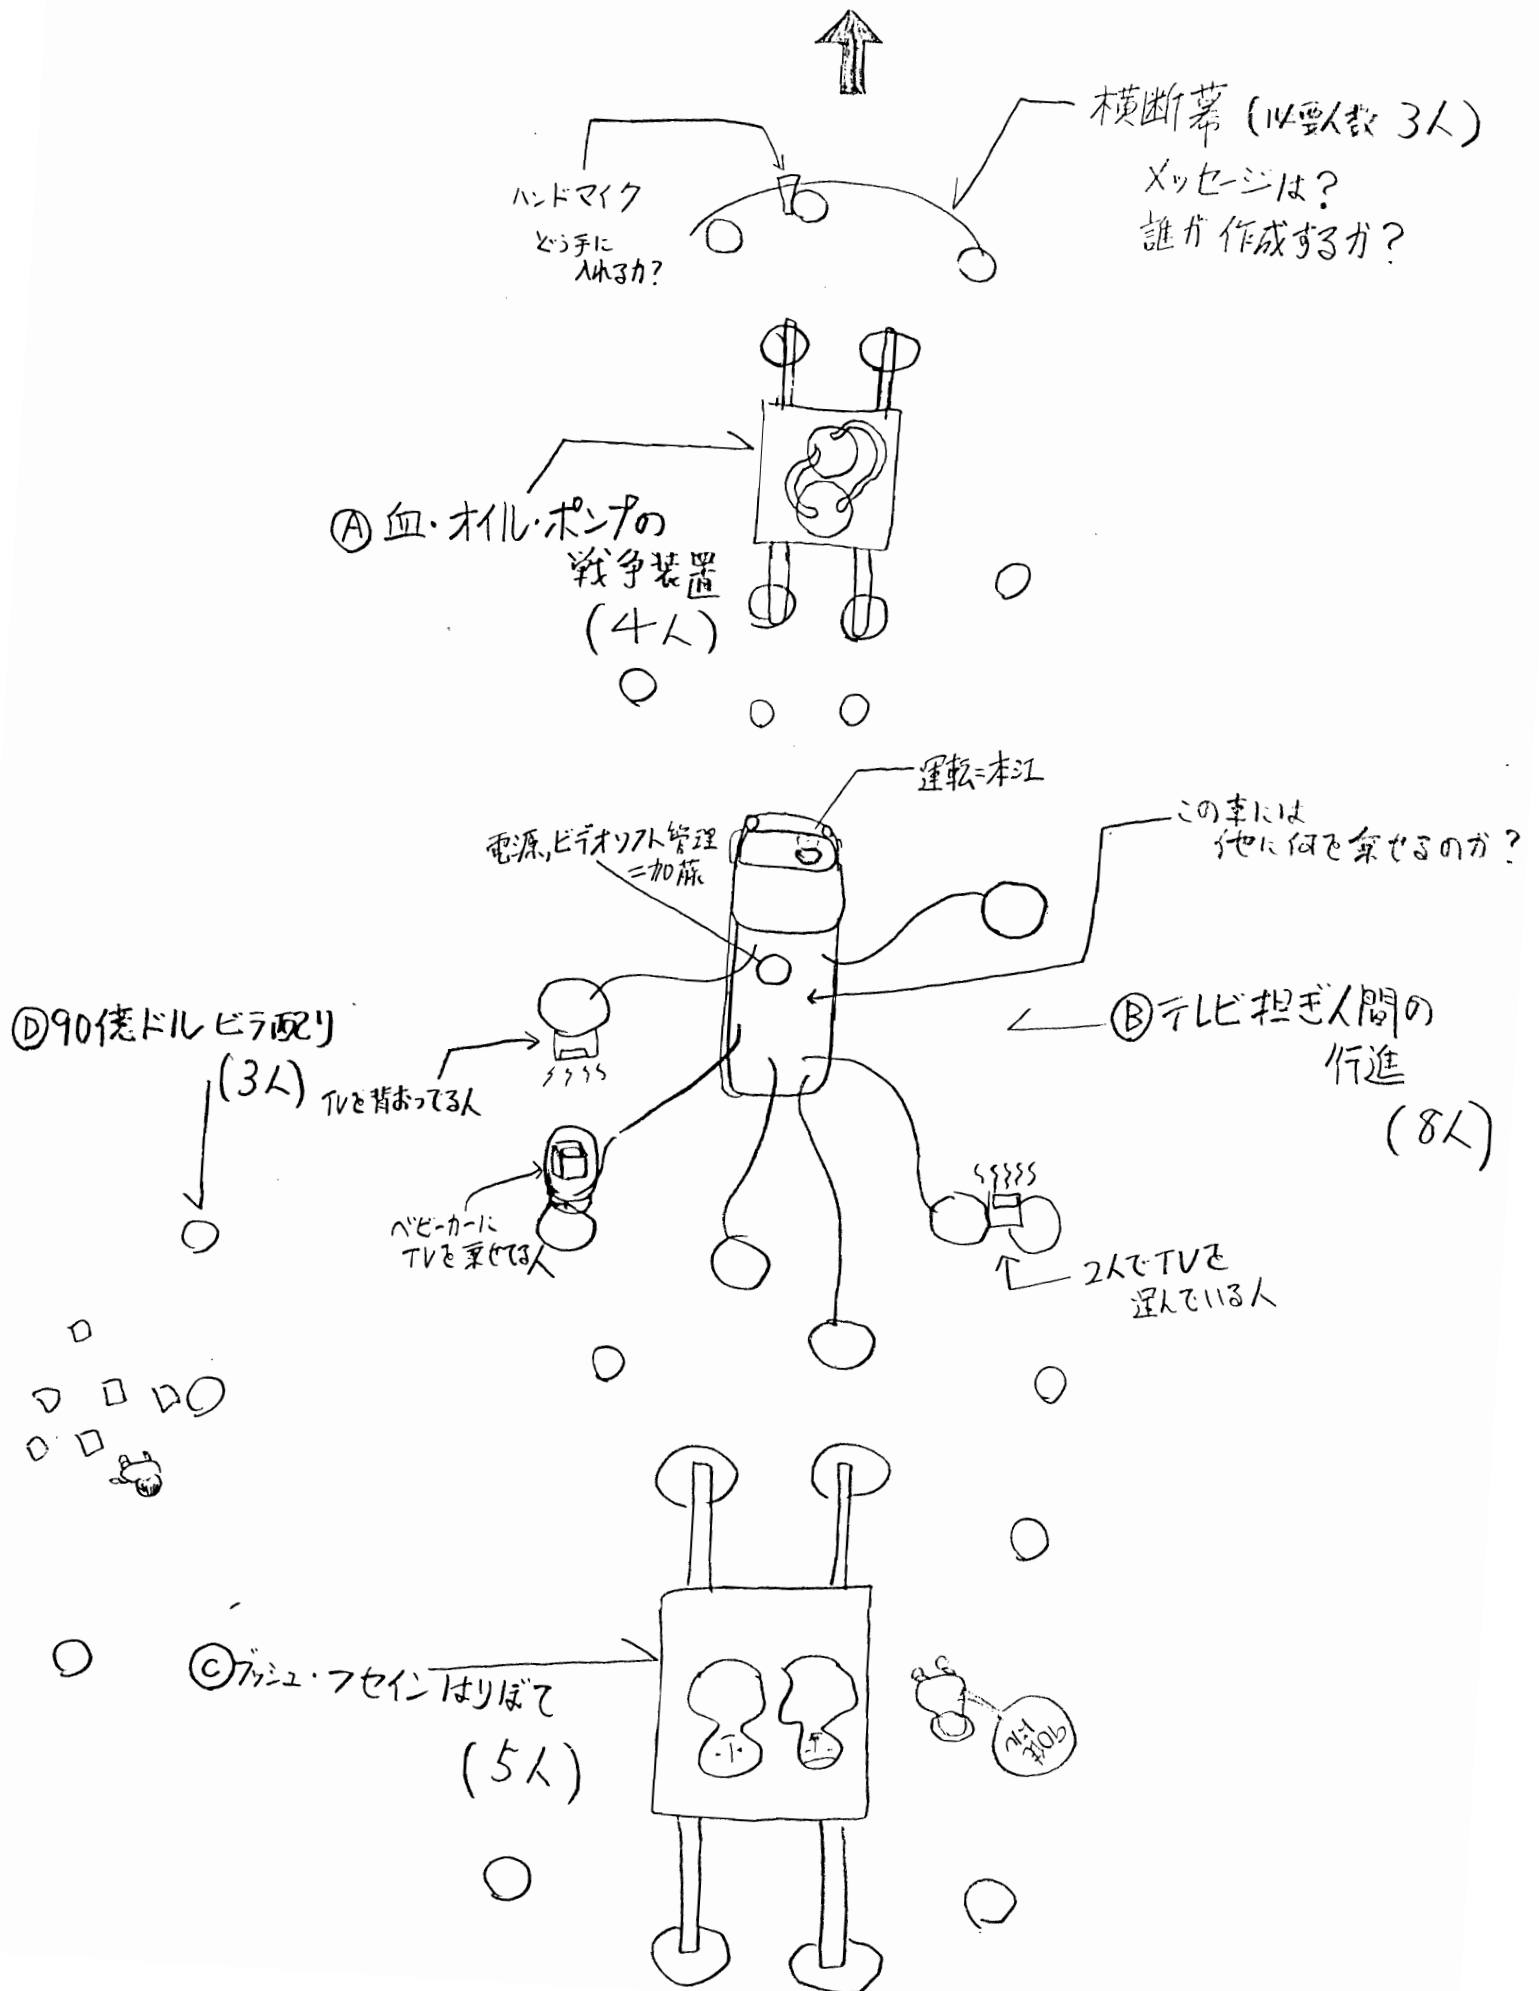 横断幕 (必要人数 3人)
メッセージは?
誰が作成するか?
ハンドマイク
どう手に
入れるか?
Ⓐ血・オイル・ポンプの
戦争装置
(4人)
運転=本江
電源,ビデオソフト管理
=加藤
この車には
他に何を乗せるのか?
Ⓑテレビ担ぎ人間の
行進
(8人)
Ⓓ90億ドルビラ配り
(3人)
TVを背おってる人
ベビーカーに
TVを乗せてる人
2人でTVを
運んでいる人
Ⓒブッシュ・フセインはりぼて
(5人)
90億
ドル